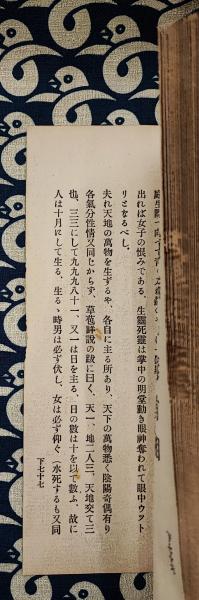 出れば女子の恨みである、生靈死靈は掌中の明堂動き眼神奪われて眼中ウツト
リとなるべし。
夫れ天地の萬物を生ずるや、各自に主る所あり、天下の萬物悉く陰陽奇偶有り
各氣分性情又同じからず、草苞詳説の跋に曰く、天一、地二人三、天地交て三
也、三三にして九九九八十一、又一は日を主る、日の數は十を以て數ふ、故に
人は十月にして生る、生るゝ時男は必ず伏し、女は必ず仰ぐ、水死するも又同
下七十七